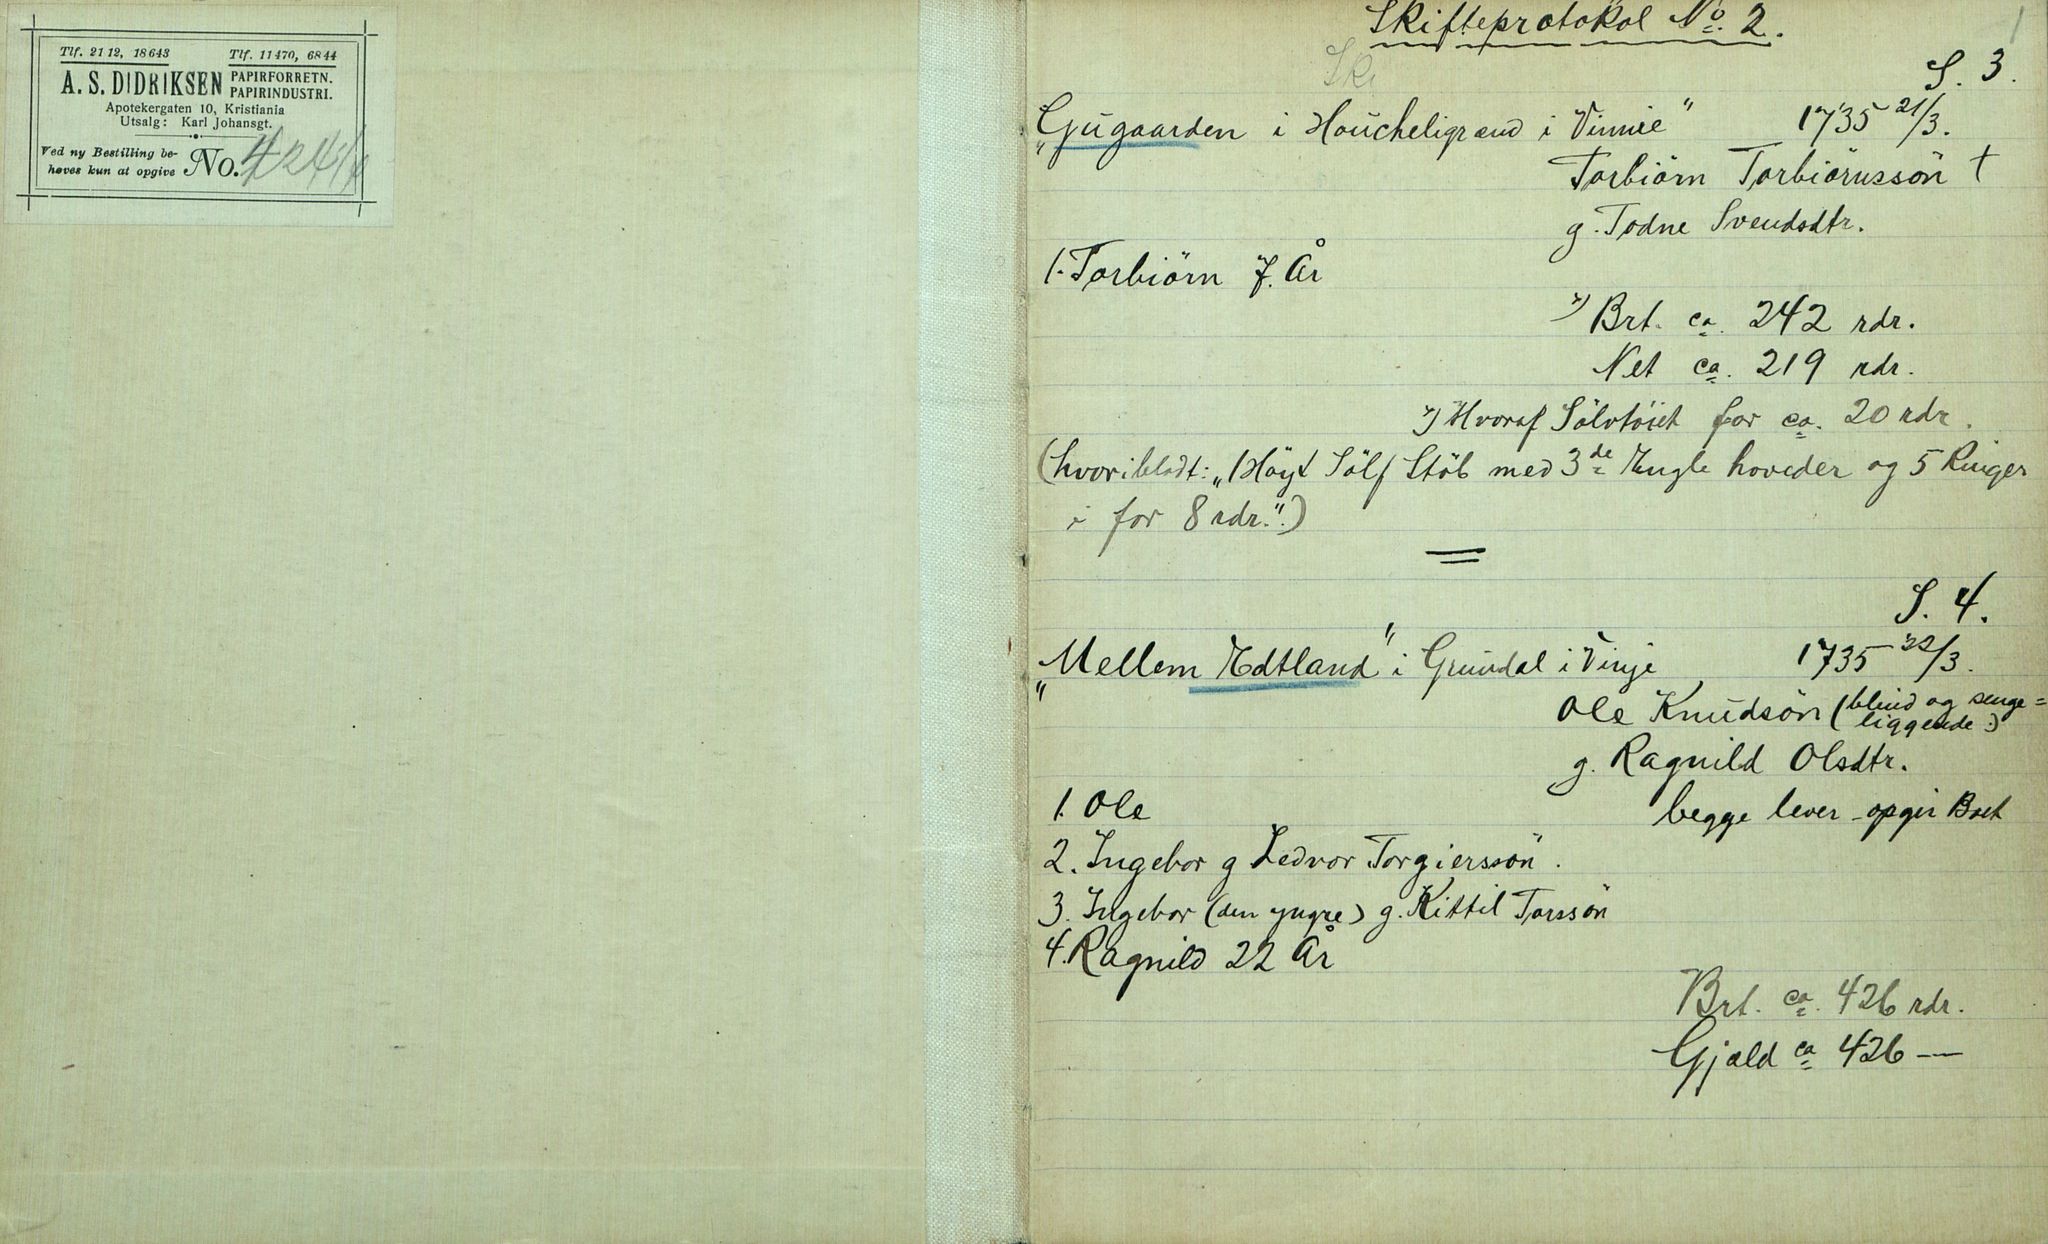 Tlf. 2112, 18643 Tlf. 11470, 6844
A. S. DIDRIKSEN PAPIRFORRETN. PAPIRINDUSTRI.
Apotekergaten 10, Kristiania
Utsalg: Karl Johansgt.
Ved ny Bestilling be-
høves kun at opgive No.
1
Skifteprotokol No. 2.
Ski
S. 3.
"Gugaarden i Houcheligrend i Vinnie" 1735 21/3.
Torbiörn Torbiörnssön †
g. Todne Svendsdtr.
1. Torbiörn 7. År
x) Brt. ca. 242 rdr.
Net ca. 219 rdr.
x) Hvoraf Sölvtöiet for ca. 20 rdr.
(hvoriblodt: "1 Höyt Sölf Stöb med 3de Engle hoveder og 5 Ringer
i for 8 rdr.".)
S. 4.
"Mellem Edtland" i Grundal i Vinje 1735 22/3.
Ole Knudsön (blind og senge=
liggende.)
g. Ragnild Olsdtr.
1. Ole begge lever - opgir Boet
2. Ingebor g Ledvor Torgierssön.
3. Ingebor (den yngre) g. Kittil Torssön
4. Ragnild 22 År
Brt. ca. 426 rdr.
Gjæld ca 426 —